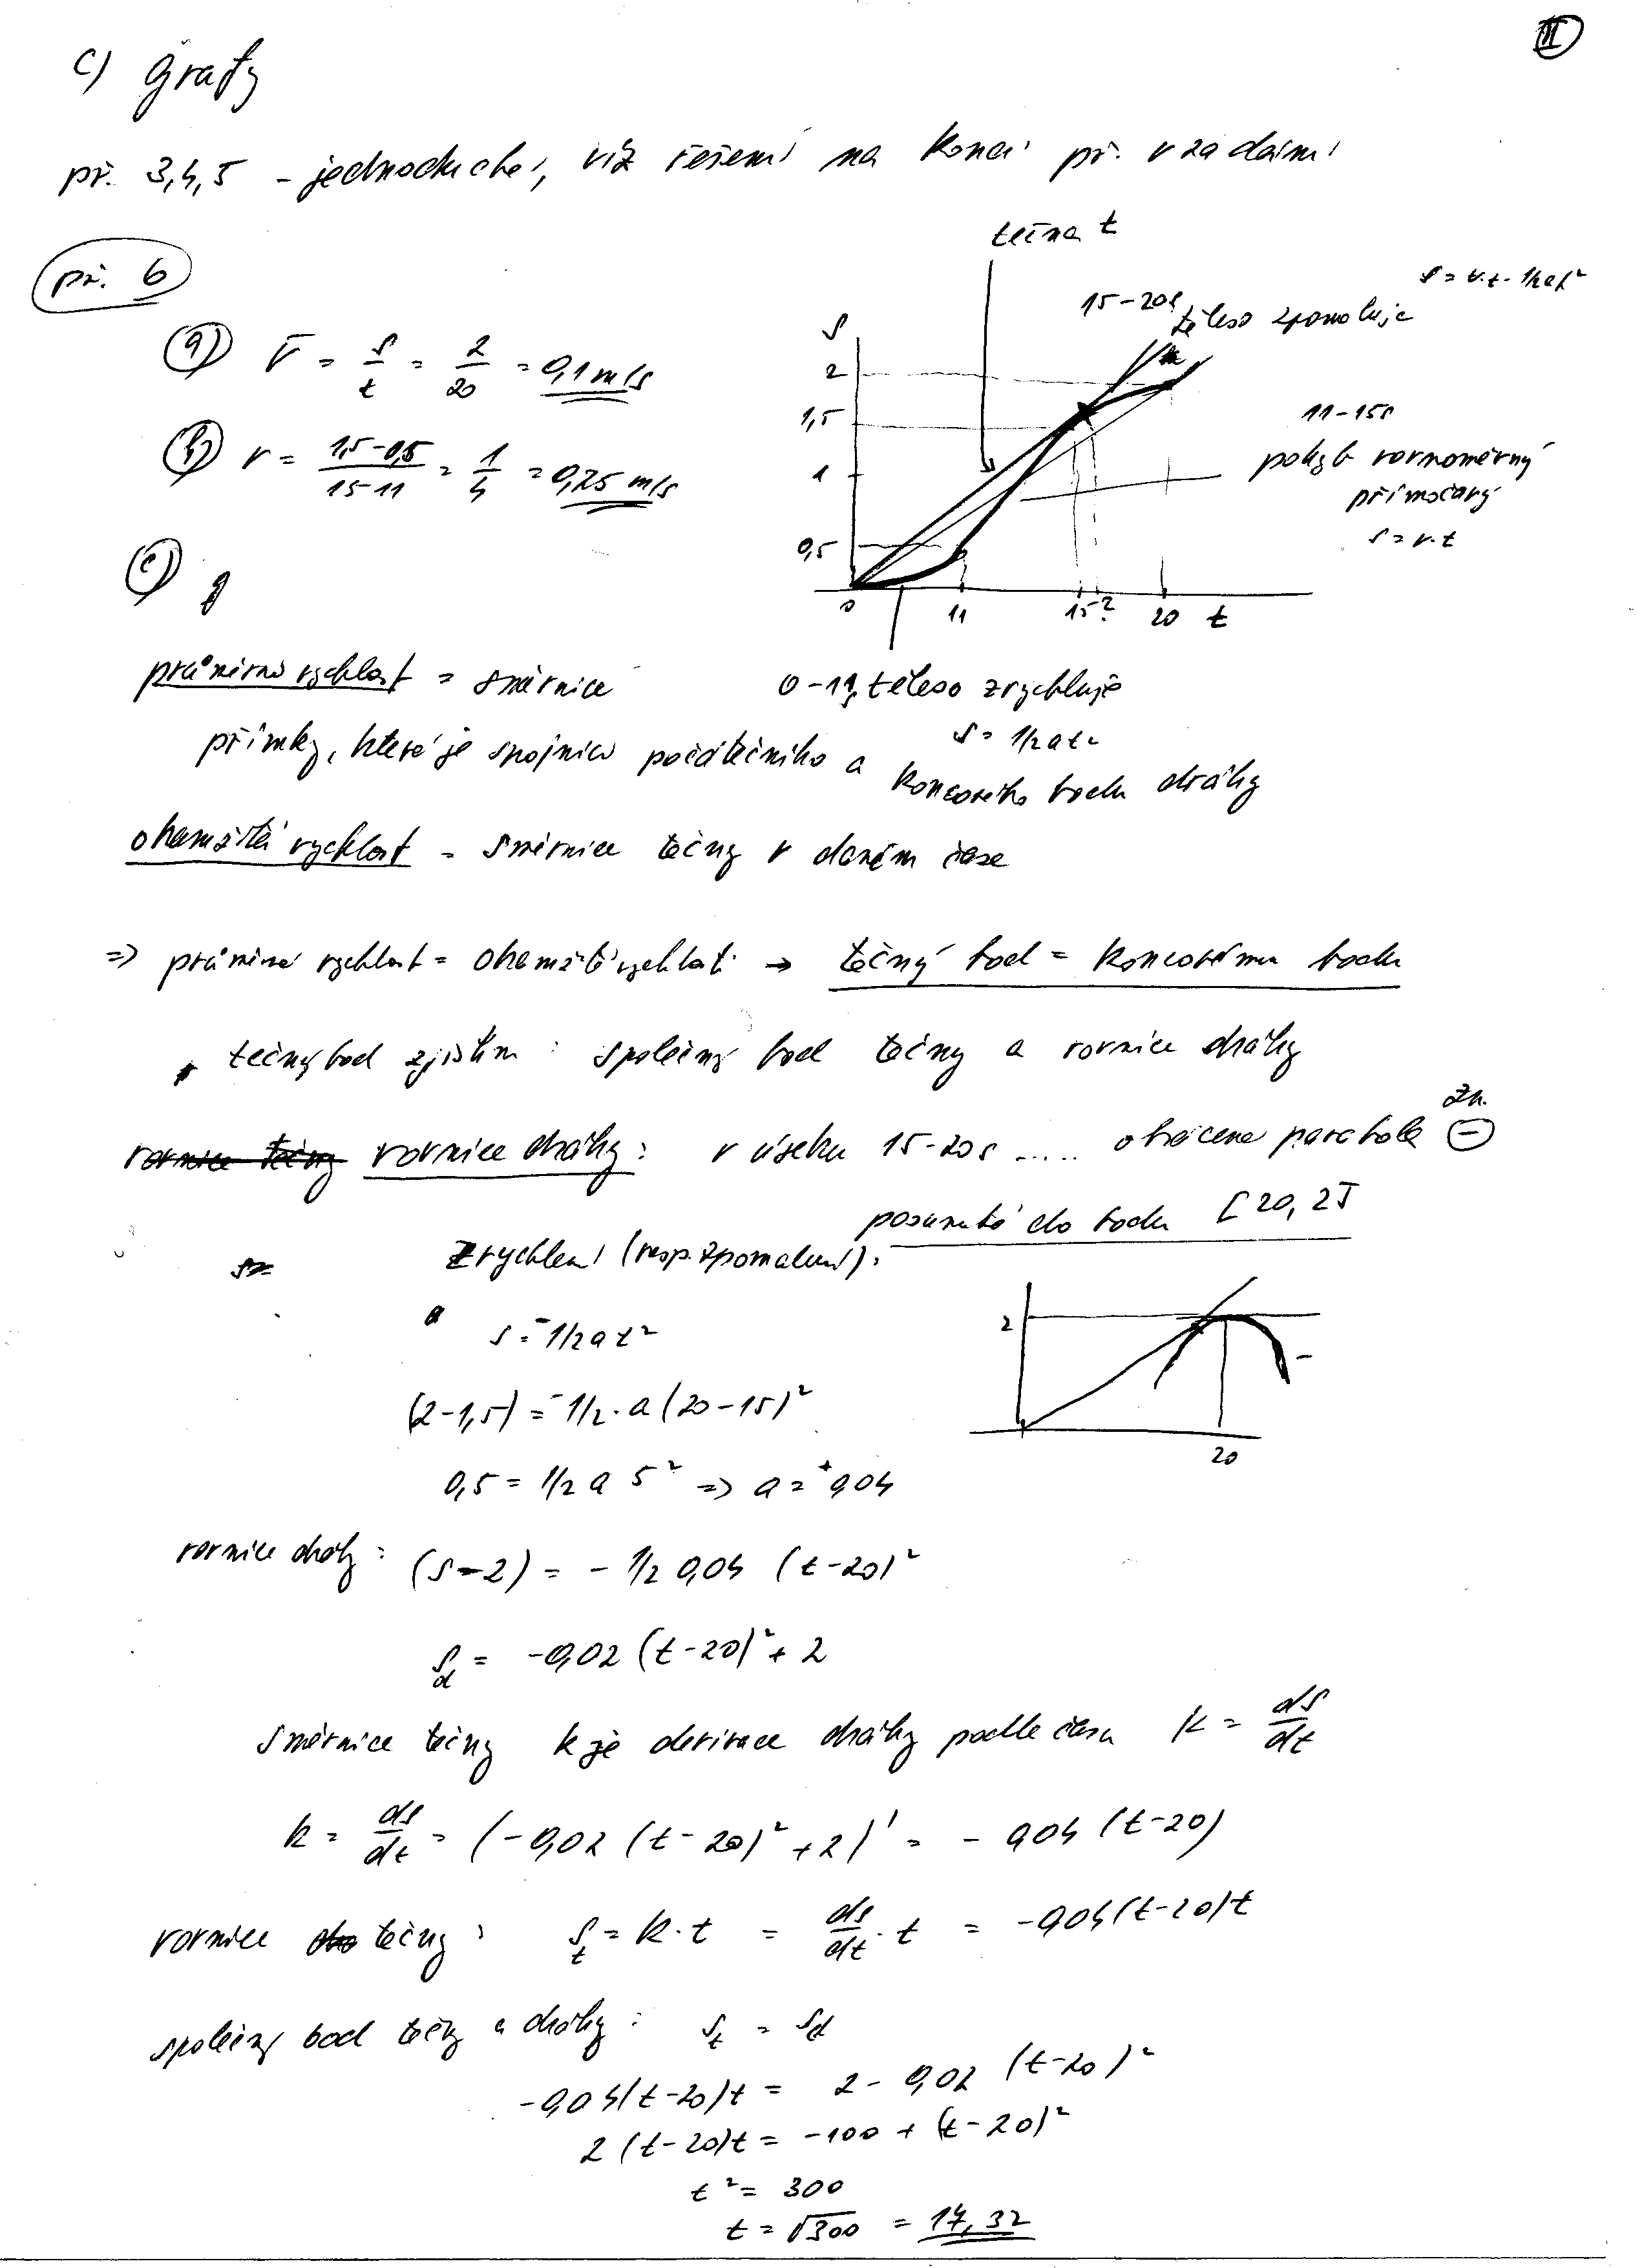 II
c) grafy
př. 3,4,5 - jednoduché, viz řešení na konci př. v zadání
př. 6
tečna t
s = v.t - 1/2at²
15-20s těleso zpomaluje
a) v̄ = s/t = 2/20 = 0,1 m/s
b) v = (1,5-0,5)/(15-11) = 1/4 = 0,25 m/s
s
2
1,5
1
0,5
0 11 15 ? 20 t
11-15s
pohyb rovnoměrný
přímočarý
s = v.t
c)
průměrná rychlost = směrnice
0-11s těleso zrychluje
s = 1/2at²
přímky, která je spojnicí počátečního a koncového bodu dráhy
okamžitá rychlost = směrnice tečny v daném čase
=> průměrná rychlost = okamžité rychlosti → tečný bod = koncovému bodu
tečný bod zjistím : společný bod tečny a rovnice dráhy
rovnice tečny rovnice dráhy: v úseku 15-20s ..... obrácená parabola zn. -
posunutá do bodu [20, 2]
s=
zrychlení (resp. zpomalení):
s = -1/2at²
2
20
-
(2-1,5) = -1/2.a(20-15)²
0,5 = 1/2 a 5² => a = +0,04
rovnice dráhy: (s-2) = - 1/2 0,04 (t-20)²
s_d = -0,02 (t-20)² + 2
směrnice tečny k je derivace dráhy podle času k = ds/dt
k = ds/dt = (-0,02 (t-20)² +2)' = - 0,04 (t-20)
rovnice tečny: s_t = k.t = ds/dt . t = -0,04(t-20)t
společný bod tečny a dráhy: s_t = s_d
-0,04(t-20)t = 2 - 0,02 (t-20)²
2 (t-20)t = -100 + (t-20)²
t² = 300
t = √300 = 17,32